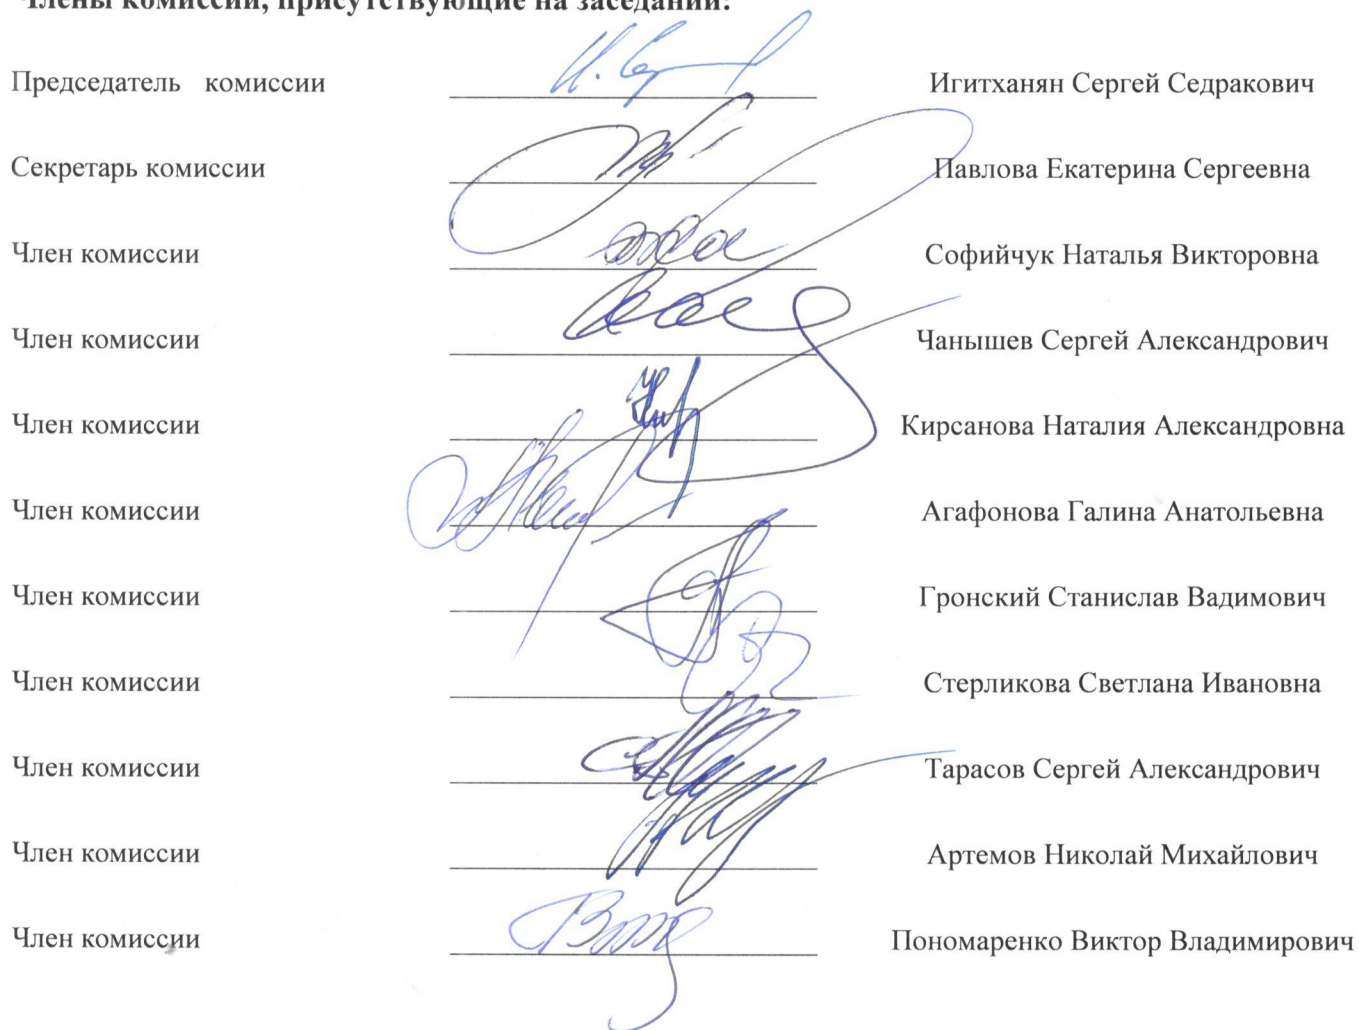 Члены комиссии, присутствующие на заседании:
Председатель комиссии Игитханян Сергей Седракович
Секретарь комиссии Павлова Екатерина Сергеевна
Член комиссии Софийчук Наталья Викторовна
Член комиссии Чанышев Сергей Александрович
Член комиссии Кирсанова Наталия Александровна
Член комиссии Агафонова Галина Анатольевна
Член комиссии Гронский Станислав Вадимович
Член комиссии Стерликова Светлана Ивановна
Член комиссии Тарасов Сергей Александрович
Член комиссии Артемов Николай Михайлович
Член комиссии Пономаренко Виктор Владимирович